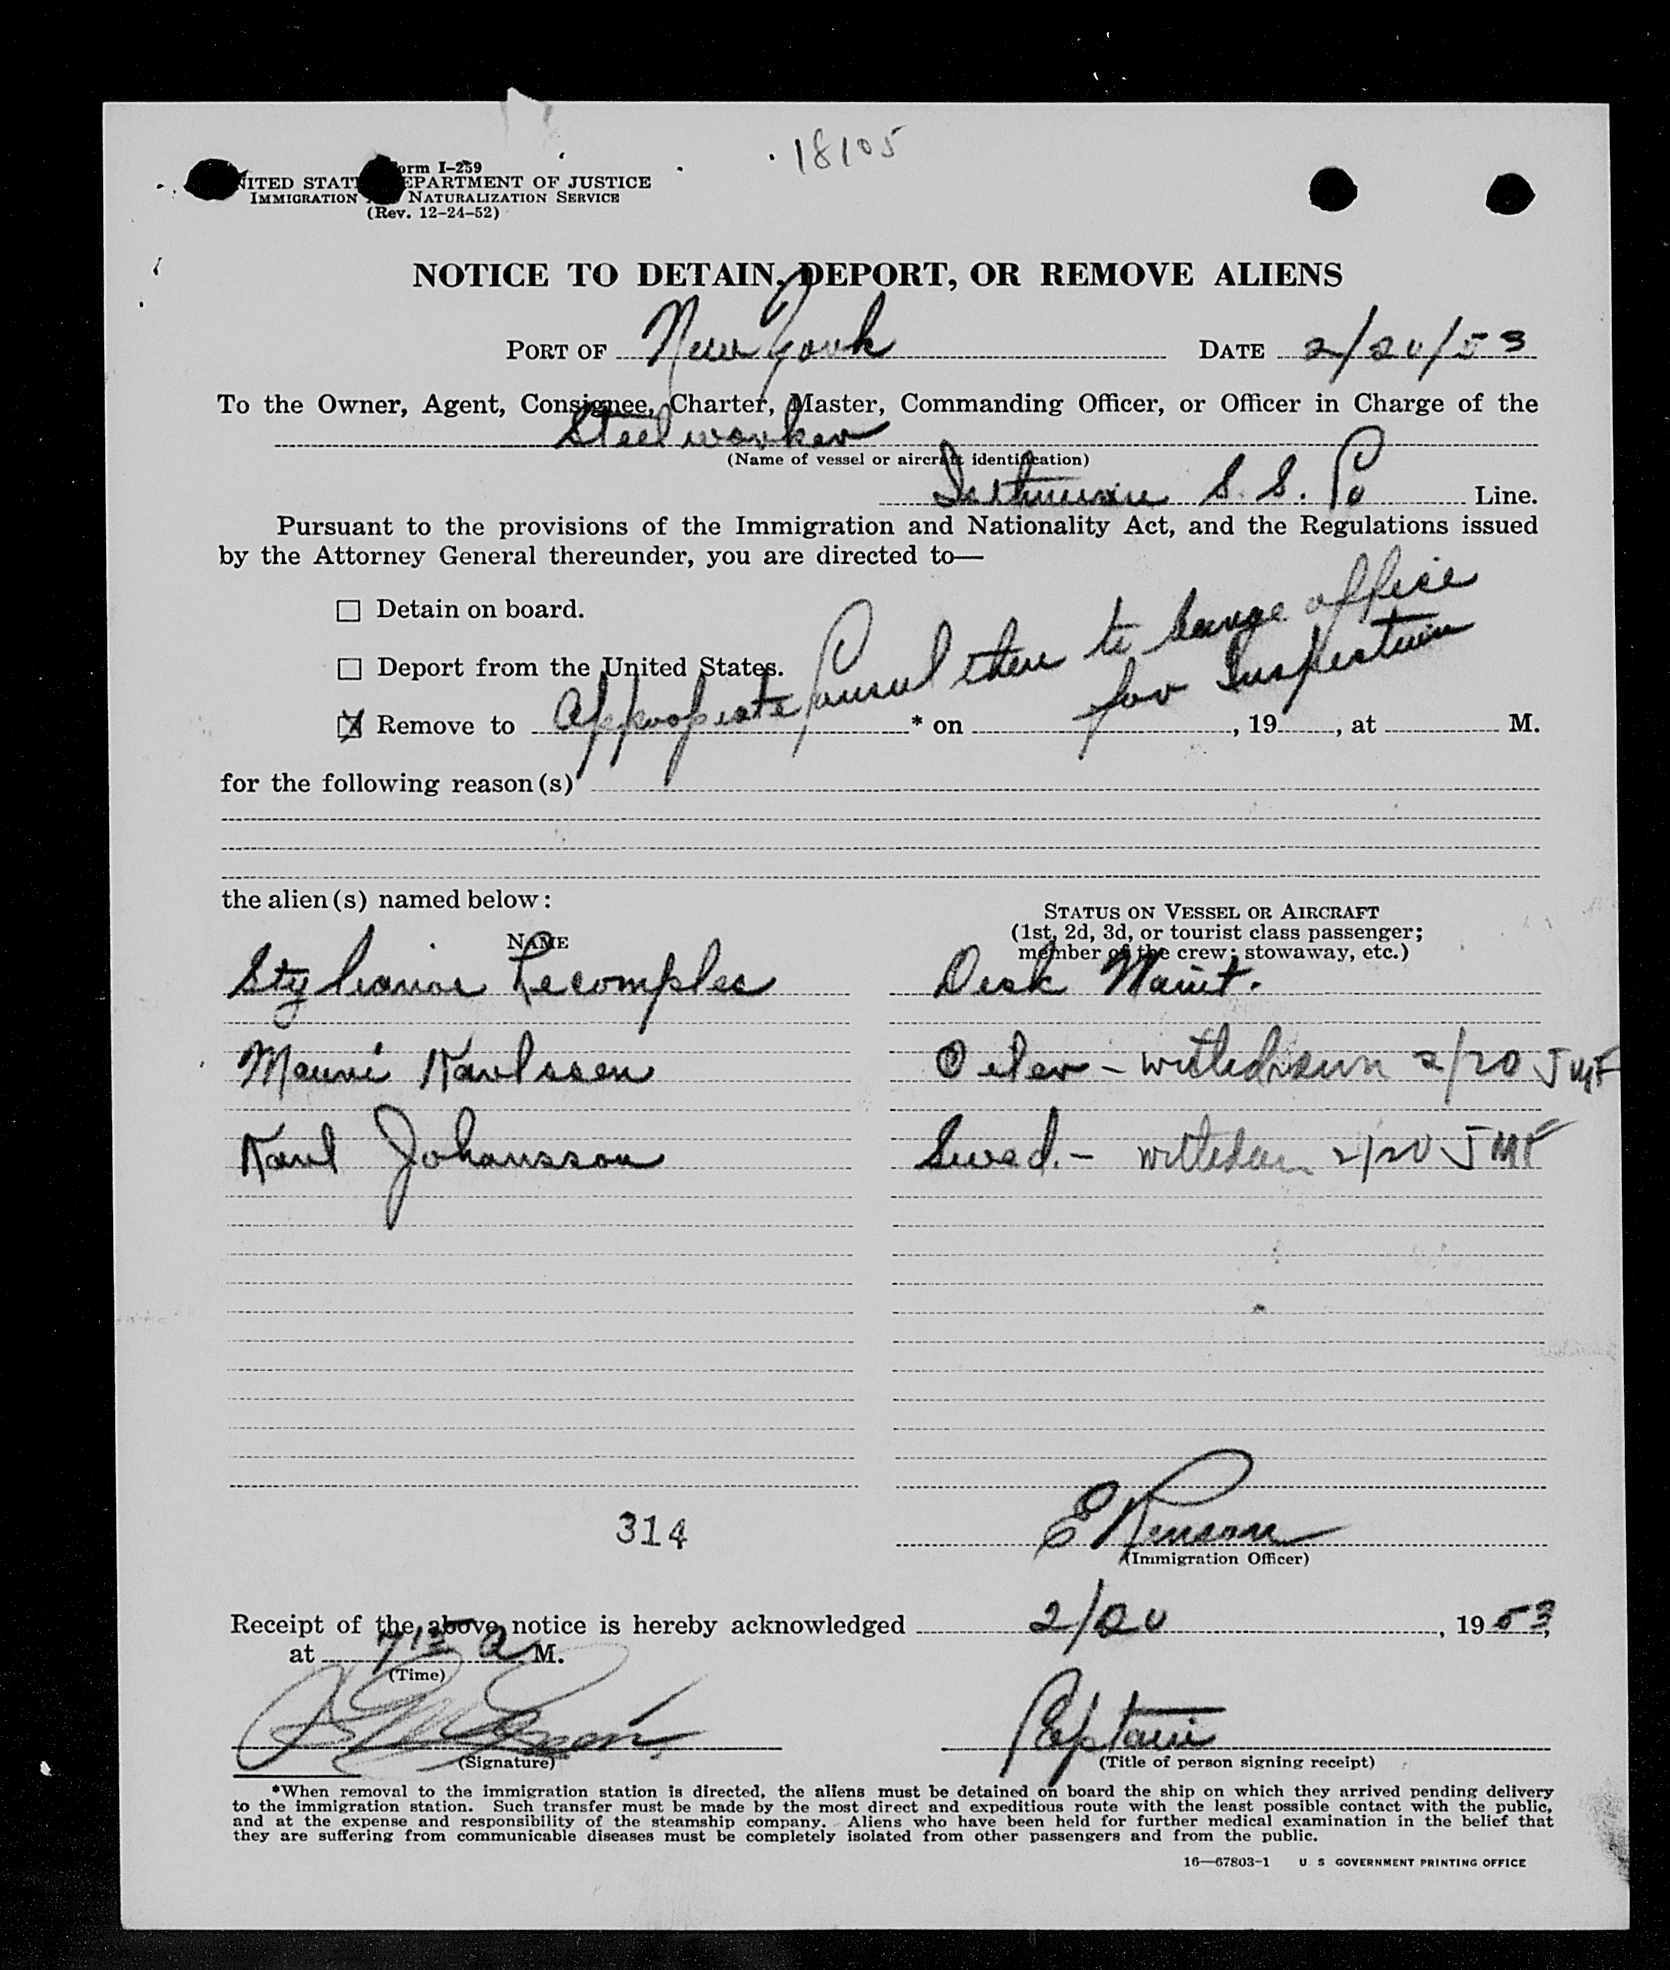 18105
Form I-259
UNITED STATES DEPARTMENT OF JUSTICE
IMMIGRATION AND NATURALIZATION SERVICE
(Rev. 12-24-52)
NOTICE TO DETAIN, DEPORT, OR REMOVE ALIENS
PORT OF New York DATE 2/20/53
To the Owner, Agent, Consignee, Charter, Master, Commanding Officer, or Officer in Charge of the
Steelworker
(Name of vessel or aircraft identification)
Isthmian S. S. Co Line.
Pursuant to the provisions of the Immigration and Nationality Act, and the Regulations issued
by the Attorney General thereunder, you are directed to—
☐ Detain on board.
☐ Deport from the United States.
☒ Remove to Appropriate Consul then to barge office * on for Inspection, 19, at M.
for the following reason(s)
the alien(s) named below:
NAME
STATUS ON VESSEL OR AIRCRAFT
(1st, 2d, 3d, or tourist class passenger;
member of the crew; stowaway, etc.)
Stylianos Lecomples Desk Maint.
Mauri Karlssen Oiler - withdrawn 2/20 JMF
Karl Johansson Swed. - withdrawn 2/20 JMF
314
E Renson
(Immigration Officer)
Receipt of the above notice is hereby acknowledged 2/20, 1953,
at 7 15 A M.
(Time)
Captain
(Signature)
(Title of person signing receipt)
*When removal to the immigration station is directed, the aliens must be detained on board the ship on which they arrived pending delivery
to the immigration station. Such transfer must be made by the most direct and expeditious route with the least possible contact with the public,
and at the expense and responsibility of the steamship company. Aliens who have been held for further medical examination in the belief that
they are suffering from communicable diseases must be completely isolated from other passengers and from the public.
16—67803-1 U S GOVERNMENT PRINTING OFFICE